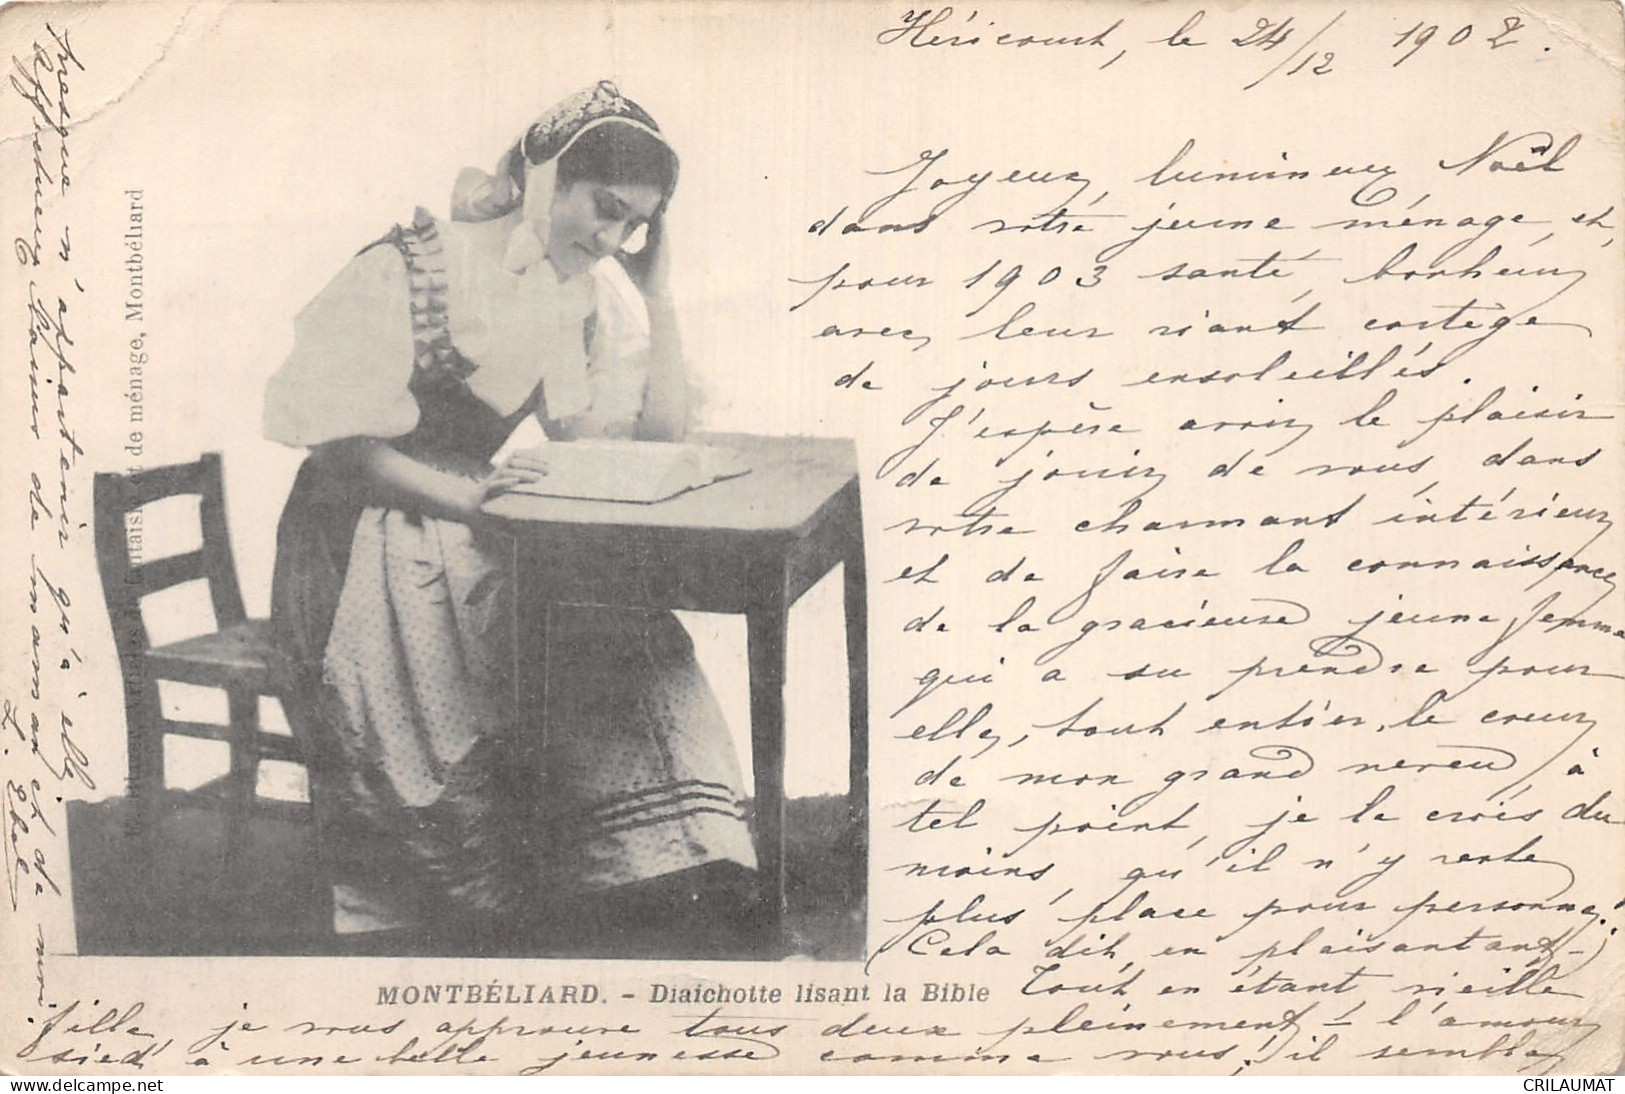 Héricourt, le 24/12 1902.
Joyeux, lumineux Noël
dans votre jeune ménage, et,
pour 1903 santé, bonheur
avec leur riant cortège
de jours ensoleillés.
J'espère avoir le plaisir
de jouir de vous, dans
votre charmant intérieur
et de faire la connaissance
de la gracieuse jeune femme
qui a su prendre pour
elle, tout entier, le cœur
de mon grand neveu, à
tel point, je le crois du
moins, qu'il n'y reste
plus place pour personne!
(Cela dit, en plaisantant-)
Tout en étant vieille
fille, je vous approuve tous deux pleinement! - l'amour
sied à une belle jeunesse comme vous; il semble
presque n'appartenir qu'à elle.
Affectueux baisers de maman et de moi.
L.
MONTBÉLIARD. - Diaichotte lisant la Bible
et de ménage, Montbéliard
CRILAUMAT